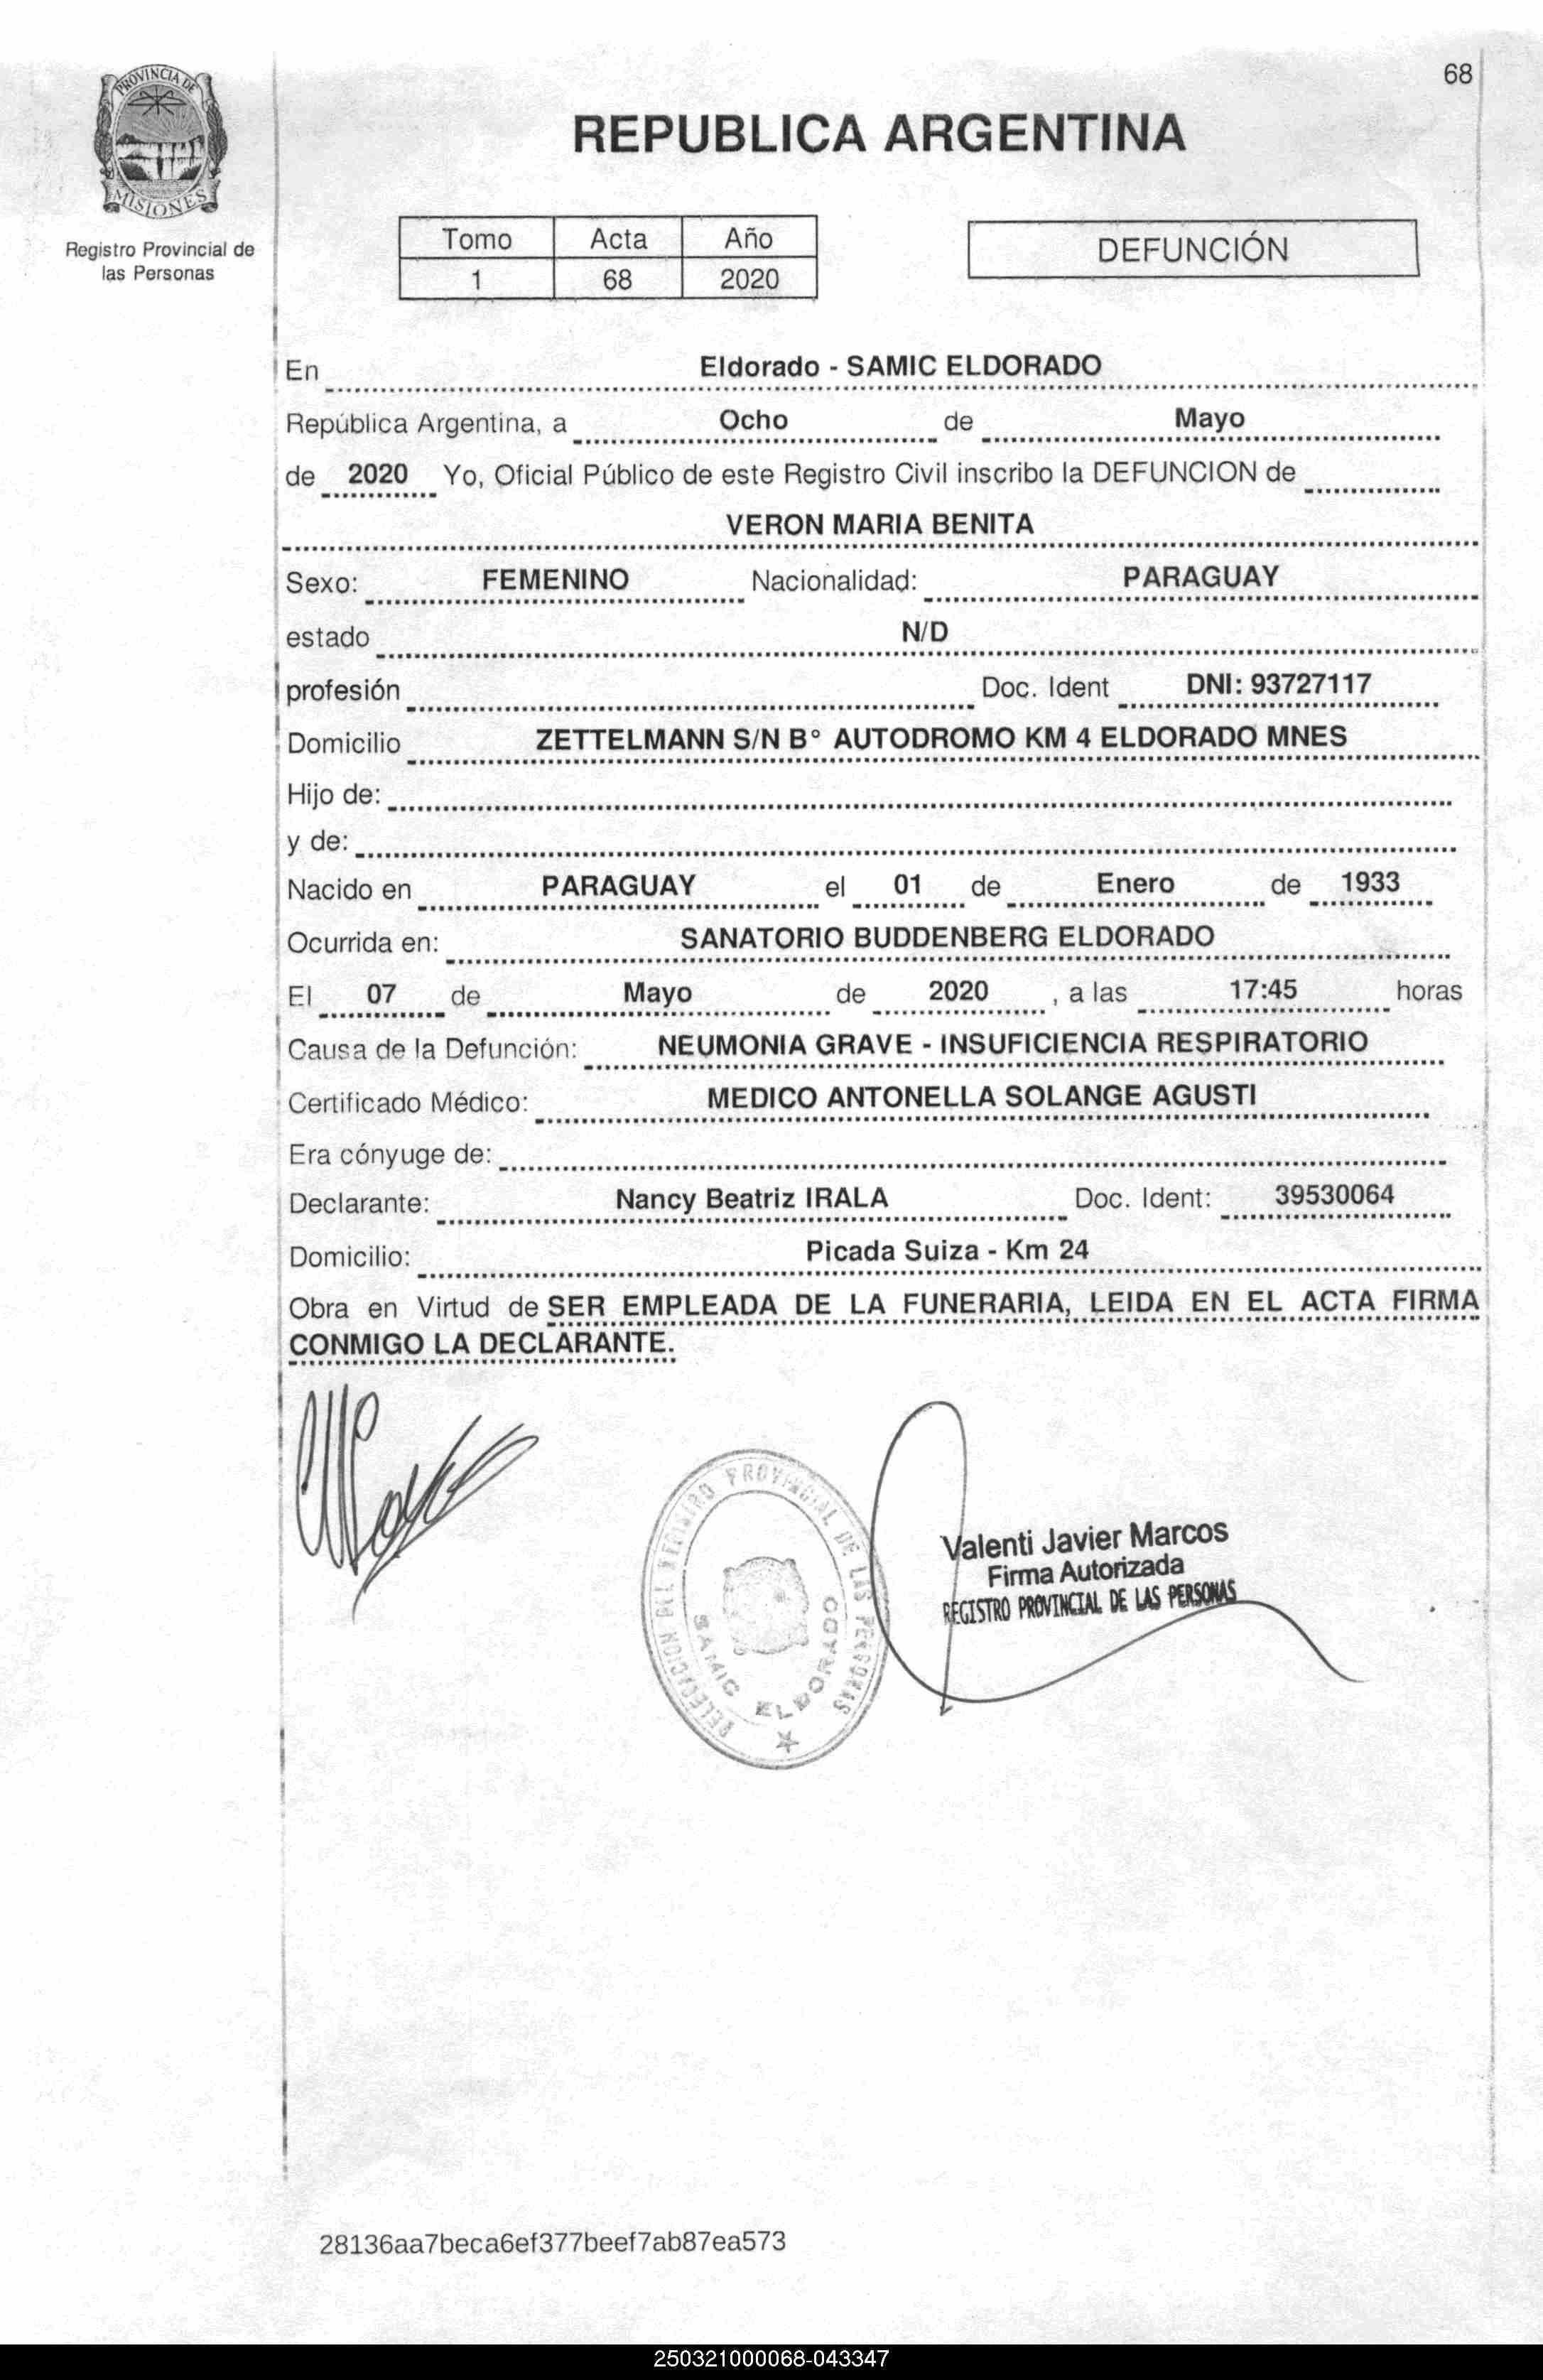 68
PROVINCIA DE
MISIONES
Registro Provincial de
las Personas
REPUBLICA ARGENTINA
Tomo Acta Año
1 68 2020
DEFUNCIÓN
En Eldorado - SAMIC ELDORADO
República Argentina, a Ocho de Mayo
de 2020 Yo, Oficial Público de este Registro Civil inscribo la DEFUNCION de
VERON MARIA BENITA
Sexo: FEMENINO Nacionalidad: PARAGUAY
estado N/D
profesión Doc. Ident DNI: 93727117
Domicilio ZETTELMANN S/N B° AUTODROMO KM 4 ELDORADO MNES
Hijo de:
y de:
Nacido en PARAGUAY el 01 de Enero de 1933
Ocurrida en: SANATORIO BUDDENBERG ELDORADO
El 07 de Mayo de 2020 , a las 17:45 horas
Causa de la Defunción: NEUMONIA GRAVE - INSUFICIENCIA RESPIRATORIO
Certificado Médico: MEDICO ANTONELLA SOLANGE AGUSTI
Era cónyuge de:
Declarante: Nancy Beatriz IRALA Doc. Ident: 39530064
Domicilio: Picada Suiza - Km 24
Obra en Virtud de SER EMPLEADA DE LA FUNERARIA, LEIDA EN EL ACTA FIRMA
CONMIGO LA DECLARANTE.
DELEGACION DEL REGISTRO PROVINCIAL DE LAS PERSONAS
SAMIC ELDORADO
Valenti Javier Marcos
Firma Autorizada
REGISTRO PROVINCIAL DE LAS PERSONAS
28136aa7beca6ef377beef7ab87ea573
250321000068-043347